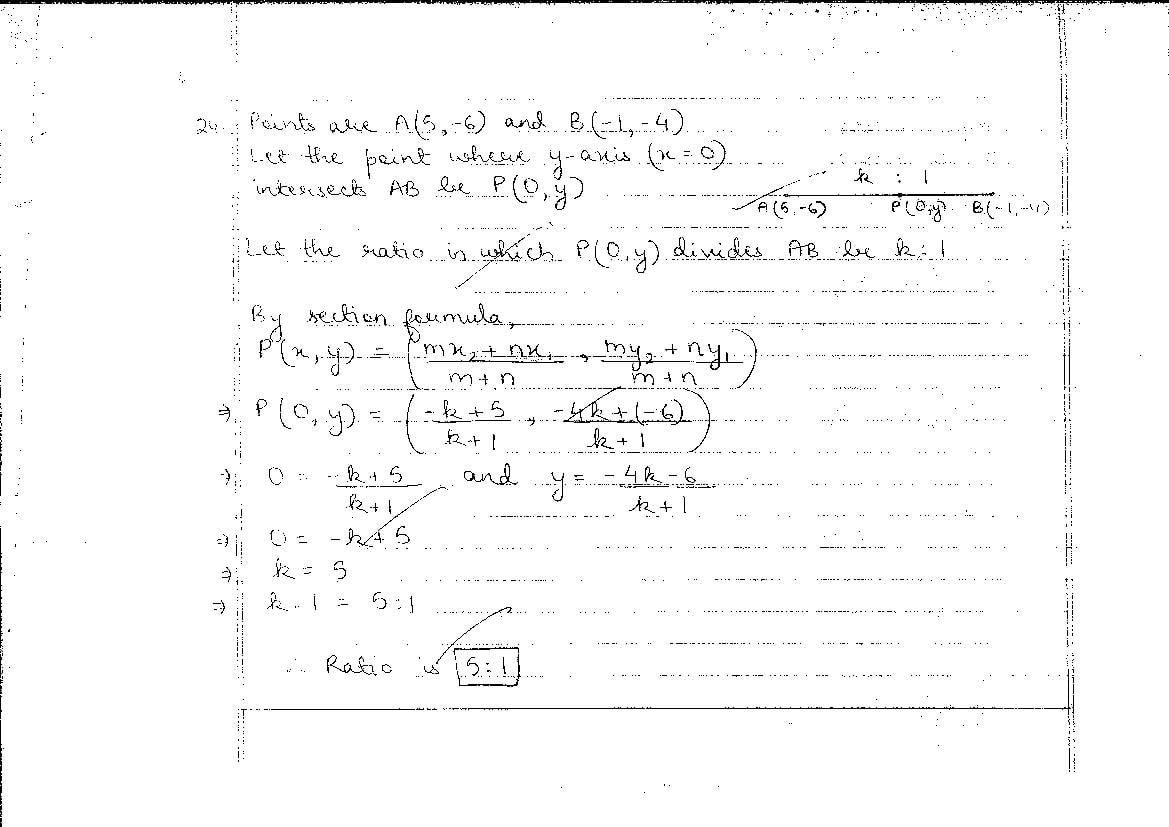 24. Points are A(5,-6) and B(-1,-4)
Let the point where y-axis (x=0)
intersects AB be P(0,y)
k : 1
A(5,-6) P(0,y) B(-1,-4)
Let the ratio in which P(0,y) divides AB be k:1
By section formula,
P(x,y) = ( mx₂ + nx₁ / m+n , my₂ + ny₁ / m+n )
⇒ P(0,y) = ( -k+5 / k+1 , -4k+(-6) / k+1 )
⇒ 0 = -k+5 / k+1 and y = -4k-6 / k+1
⇒ 0 = -k+5
⇒ k = 5
⇒ k:1 = 5:1
∴ Ratio is 5:1